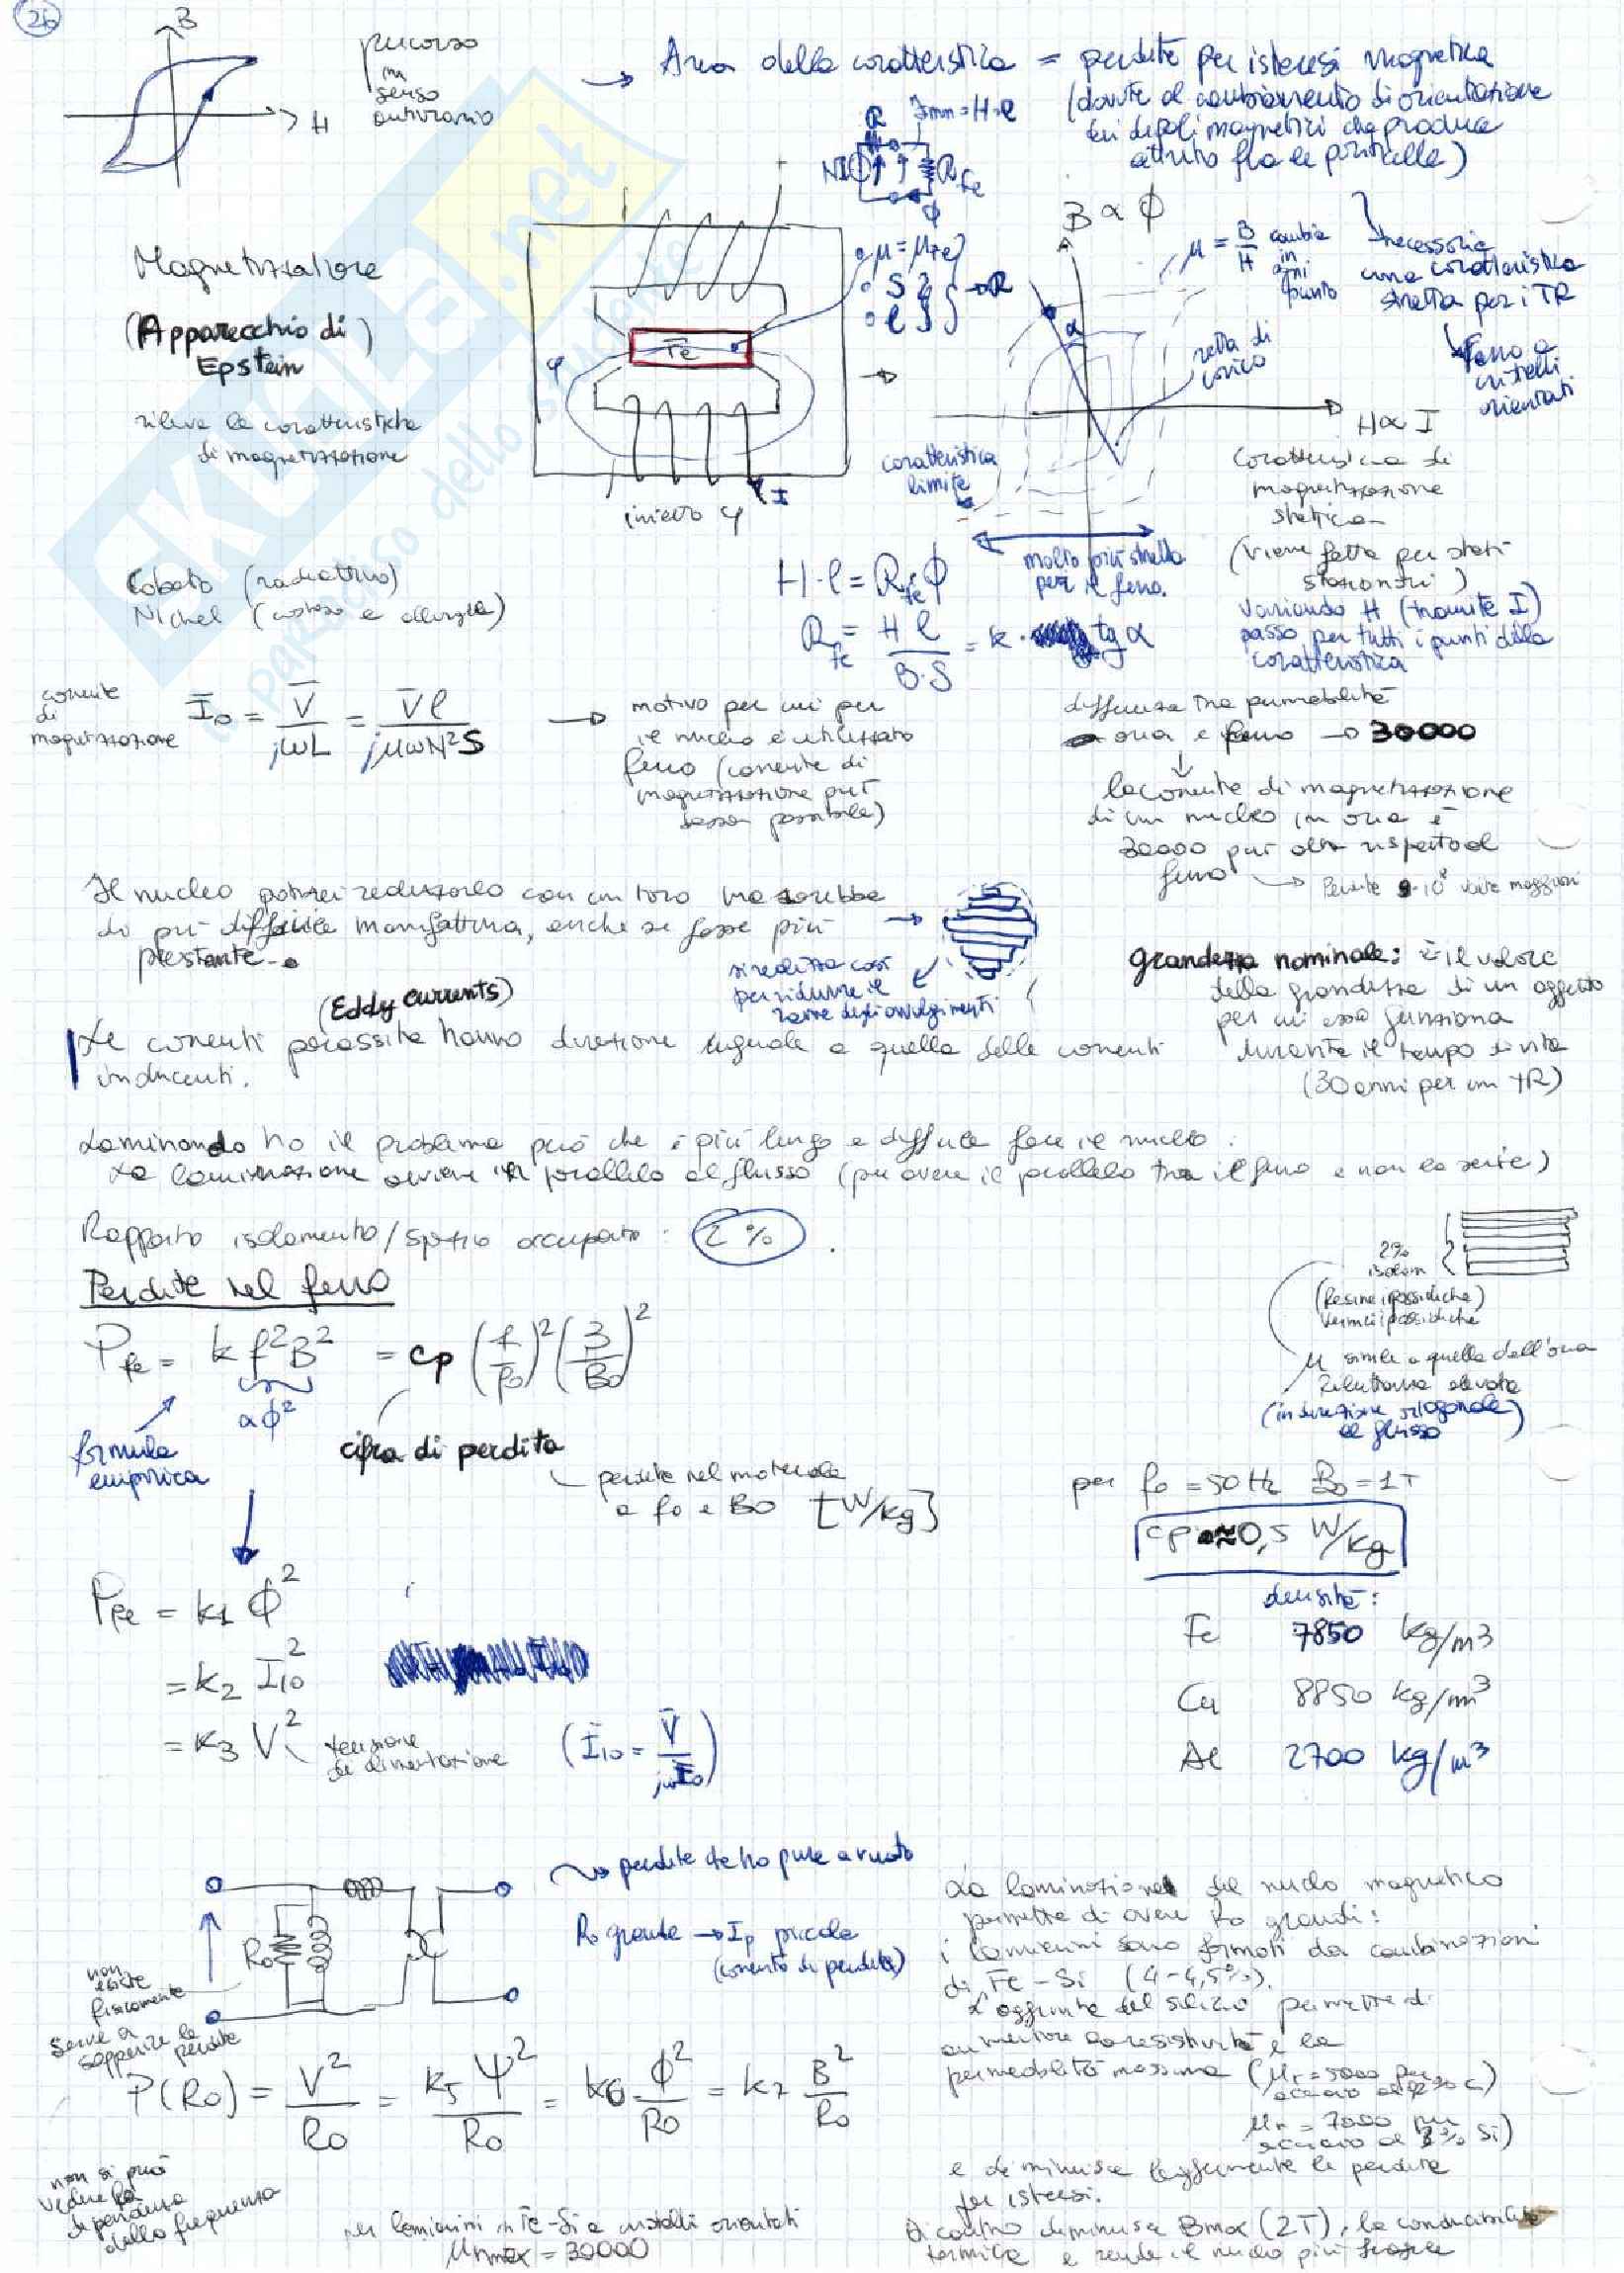 26
B
H
percorso
in
senso
antiorario
→ Area della caratteristica = perdite per isteresi magnetica
(dovute al cambiamento di orientazione
dei dipoli magnetici che produce
attrito fra le particelle)
R
Fmm = H·l
NI
R Fe
ϕ
SKUOLA.net
il paradiso dello studente
Magnetizzatore
(Apparecchio di
Epstein)
rileva le caratteristiche
di magnetizzazione
Fe
φ
I
inietto φ
μ = μFe
S
l
→ R
B ∝ ϕ
μ = B/H cambia
in
ogni
punto
necessaria
una caratteristica
stretta per i TR
Ferro a
cristalli
orientati
α
retta di
carico
H ∝ I
caratteristica
limite
Caratteristica di
magnetizzazione
statica
(viene fatta per stati
stazionari)
variando H (tramite I)
passo per tutti i punti della
caratteristica
molto più stretta
per il ferro.
Cobalto (radioattivo)
Nichel (costoso e allergie)
H·l = R Fe ϕ
R Fe = H l / B·S = k · tg α
corrente
di
magnetizzazione
I0 = V / jωL = V l / jμωN²S
→ motivo per cui per
il nucleo è utilizzato
ferro (corrente di
magnetizzazione più
bassa possibile)
differenza tra permeabilità
aria e ferro → 30000
↓
la corrente di magnetizzazione
di un nucleo in aria è
30000 più alta rispetto al
ferro → Perdite 9·10⁸ volte maggiori
Il nucleo potrei realizzarlo con un toro ma sarebbe
di più difficile manifattura, anche se fosse più
prestante.
si realizza così
per ridurre il
rame degli avvolgimenti
grandezza nominale: è il valore
della grandezza di un oggetto
per cui essa funziona
durante il tempo di vita
(30 anni per un TR)
(Eddy currents)
Le correnti parassite hanno direzione uguale a quella delle correnti
inducenti.
Laminando ho il problema però che è più lungo e difficile fare il nucleo.
La laminazione avviene in parallelo al flusso (per avere il parallelo tra il ferro e non la serie)
Rapporto isolamento/spazio occupato: 2%.
2%
isolam
(Resine epossidiche)
vernici epossidiche
μ simile a quella dell'aria
riluttanza elevata
(in direzione ortogonale)
al flusso
Perdite nel ferro
PFe = k f²B² = cp (f/f0)² (B/B0)²
∝ ϕ²
formula
empirica
cifra di perdita
perdite nel materiale
a f0 e B0 [W/kg]
per f0 = 50 Hz B0 = 1T
cp ≈ 0,5 W/kg
densità:
Fe 7850 kg/m³
Cu 8850 kg/m³
Al 2700 kg/m³
PFe = k1 ϕ²
= k2 I10²
= k3 V² tensione
di alimentazione
perdite dette pure a vuoto
R0
R0 grande → Ip piccola
(corrente di perdita)
non
esiste
fisicamente
serve a
sapperire le
perdite
La laminazione del nucleo magnetico
permette di avere R0 grandi:
i lamierini sono formati da combinazioni
di Fe-Si (4-4,5%).
L'aggiunta del silicio permette di
aumentare la resistività e la
permeabilità massima
e diminuisce leggermente le perdite
per isteresi.
Di contro diminuisce Bmax (2T), la conducibilità
termica e rende il nucleo più fragile
P(R0) = V²/R0 = k5 Ψ²/R0 = k6 ϕ²/R0 = k7 B²/R0
non si può
vedere la
dipendenza
dalla frequenza
per lamierini in Fe-Si a cristalli orientati
μrmax = 30000